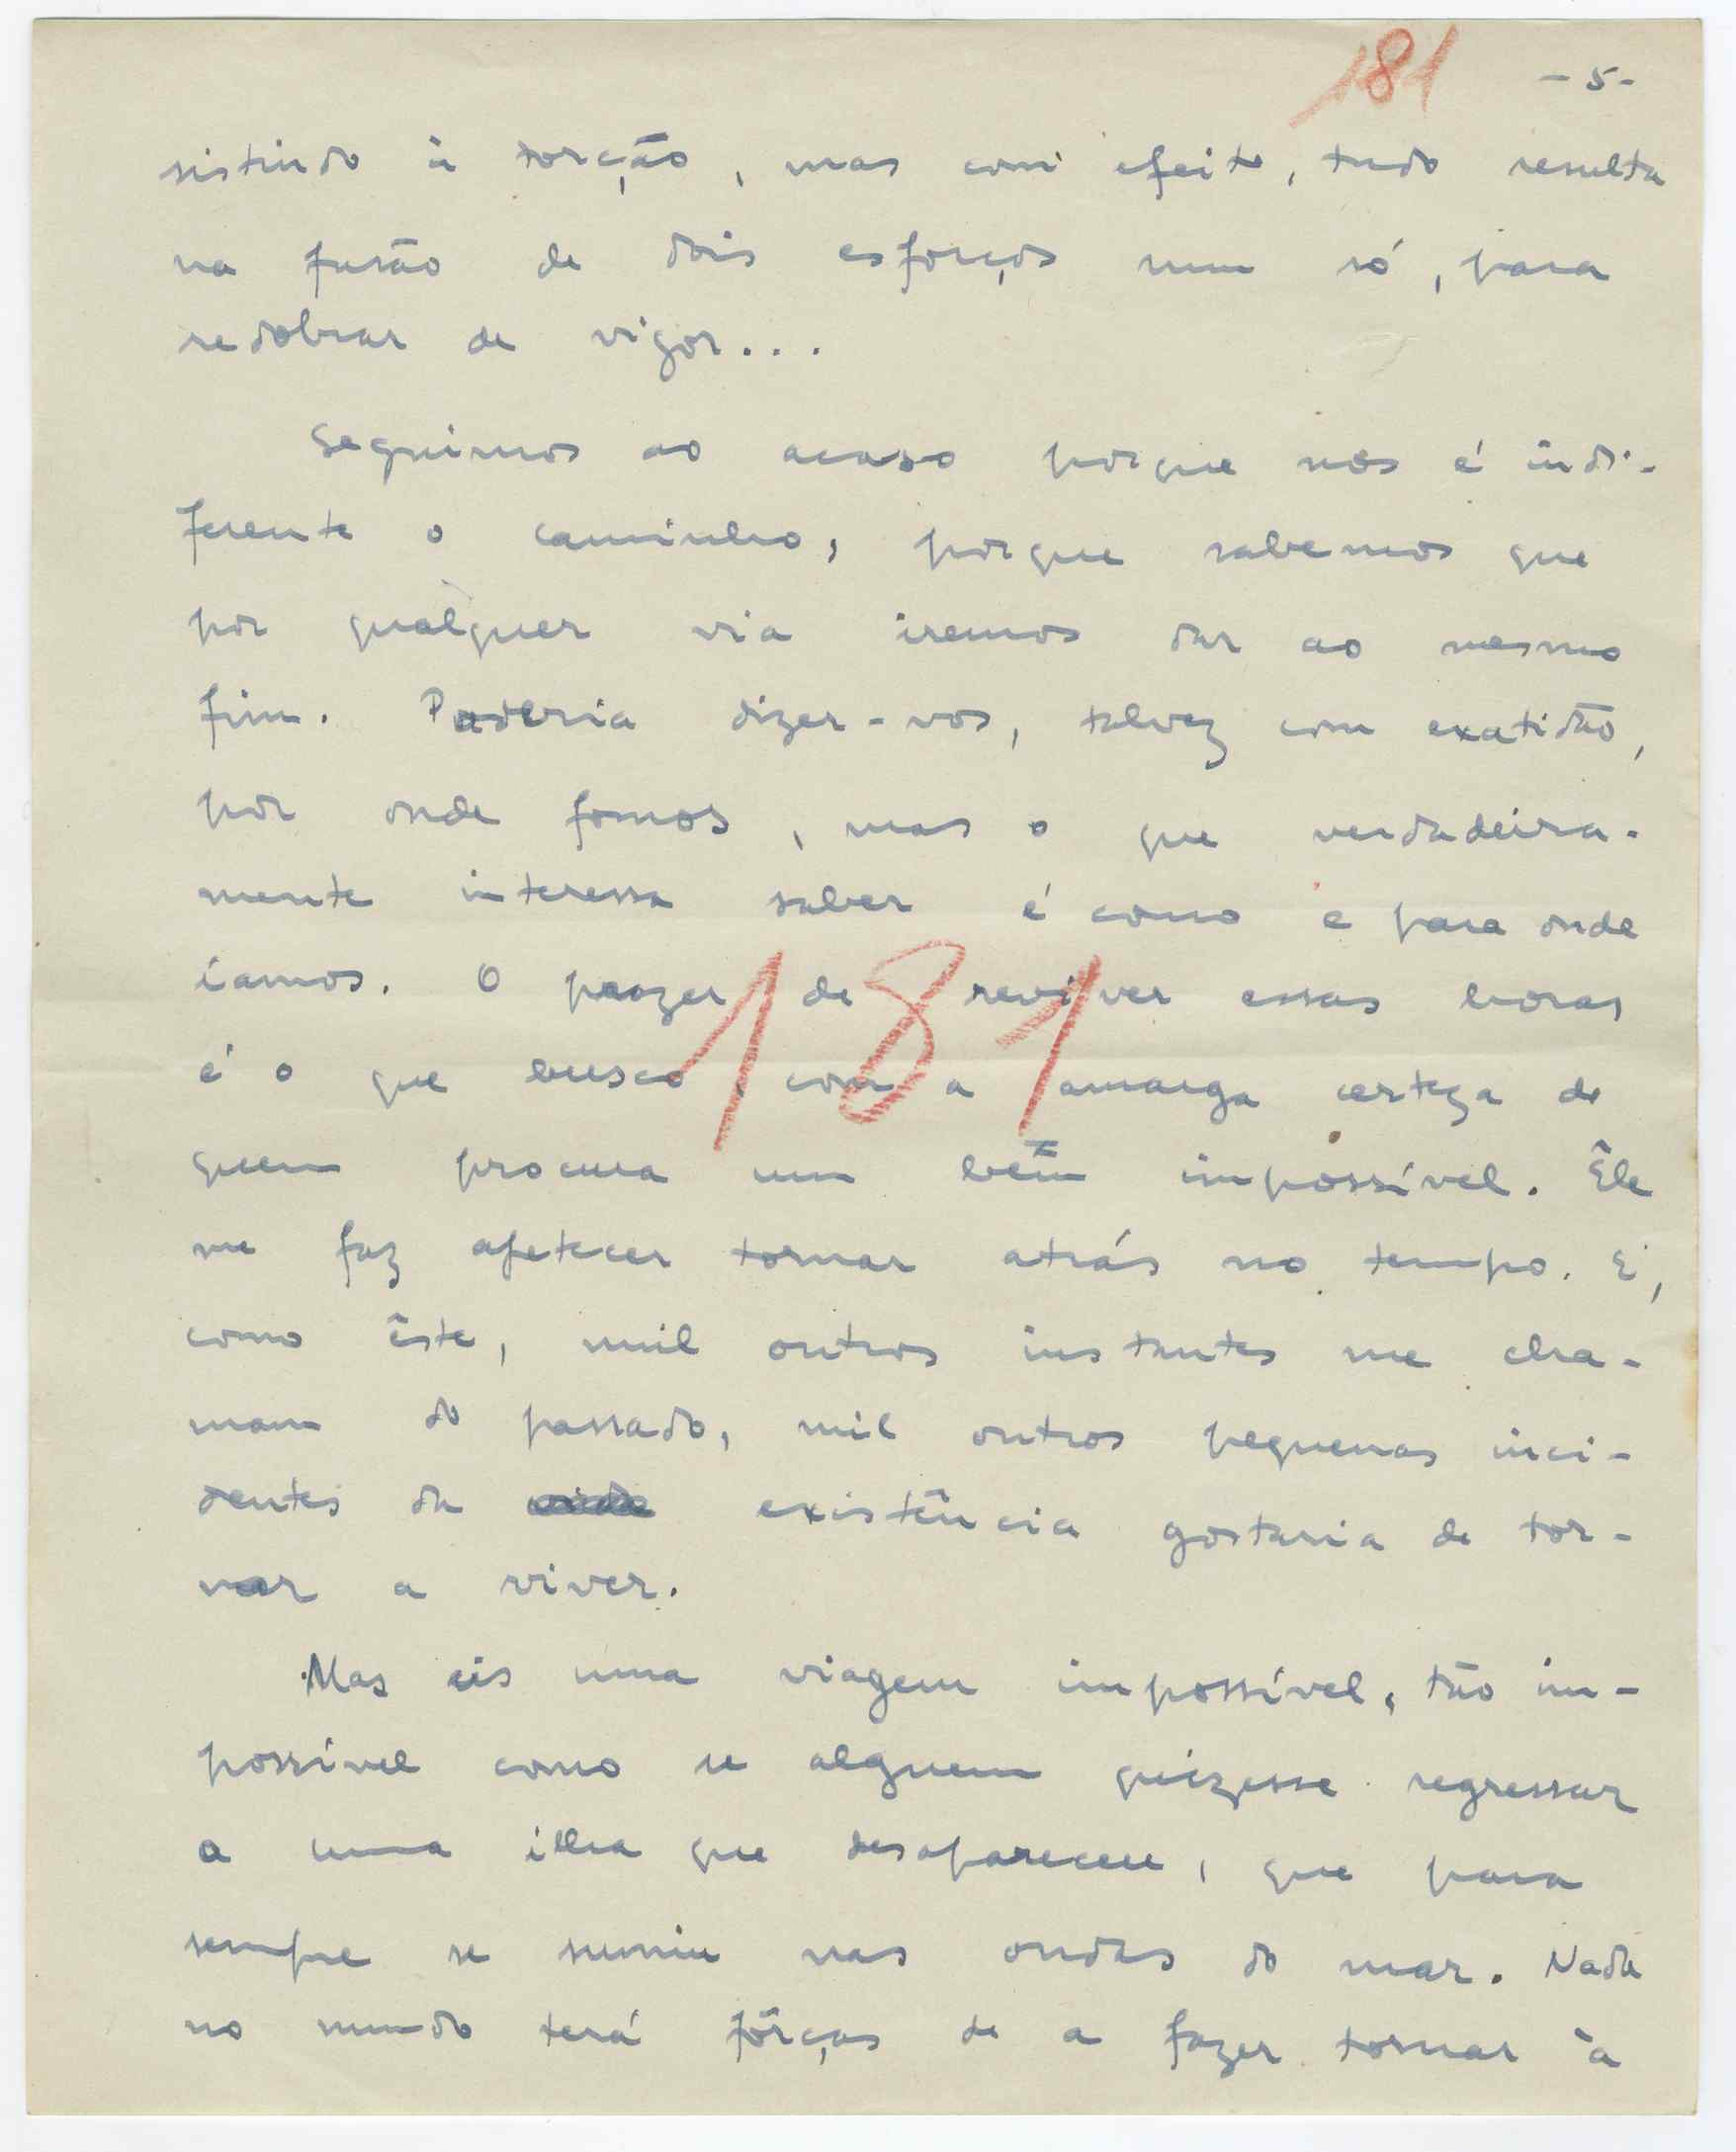 181 -5-
sistindo à torção, mas com efeito, tudo resulta
na fusão de dois esforços num só, para
redobrar de vigor...
Seguimos ao acaso porque nos é indi-
ferente o caminho, porque sabemos que
por qualquer via iremos dar ao mesmo
fim. Poderia dizer-vos, talvez com exatidão,
por onde fomos, mas o que verdadeira-
mente interessa saber é como e para onde
íamos. O prazer de reviver essas horas
é o que busco, com a amarga certeza de
181
quem procura um bem impossível. Êle
me faz apetecer tornar atrás no tempo. E,
como êste, mil outros instantes me cha-
mam do passado, mil outros pequenos inci-
dentes da vida existência gostaria de tor-
nar a viver.
Mas eis uma viagem impossível, tão im-
possível como se alguem quizesse regressar
a uma ilha que desapareceu, que para
sempre se sumiu nas ondas do mar. Nada
no mundo terá fôrças de a fazer tornar à